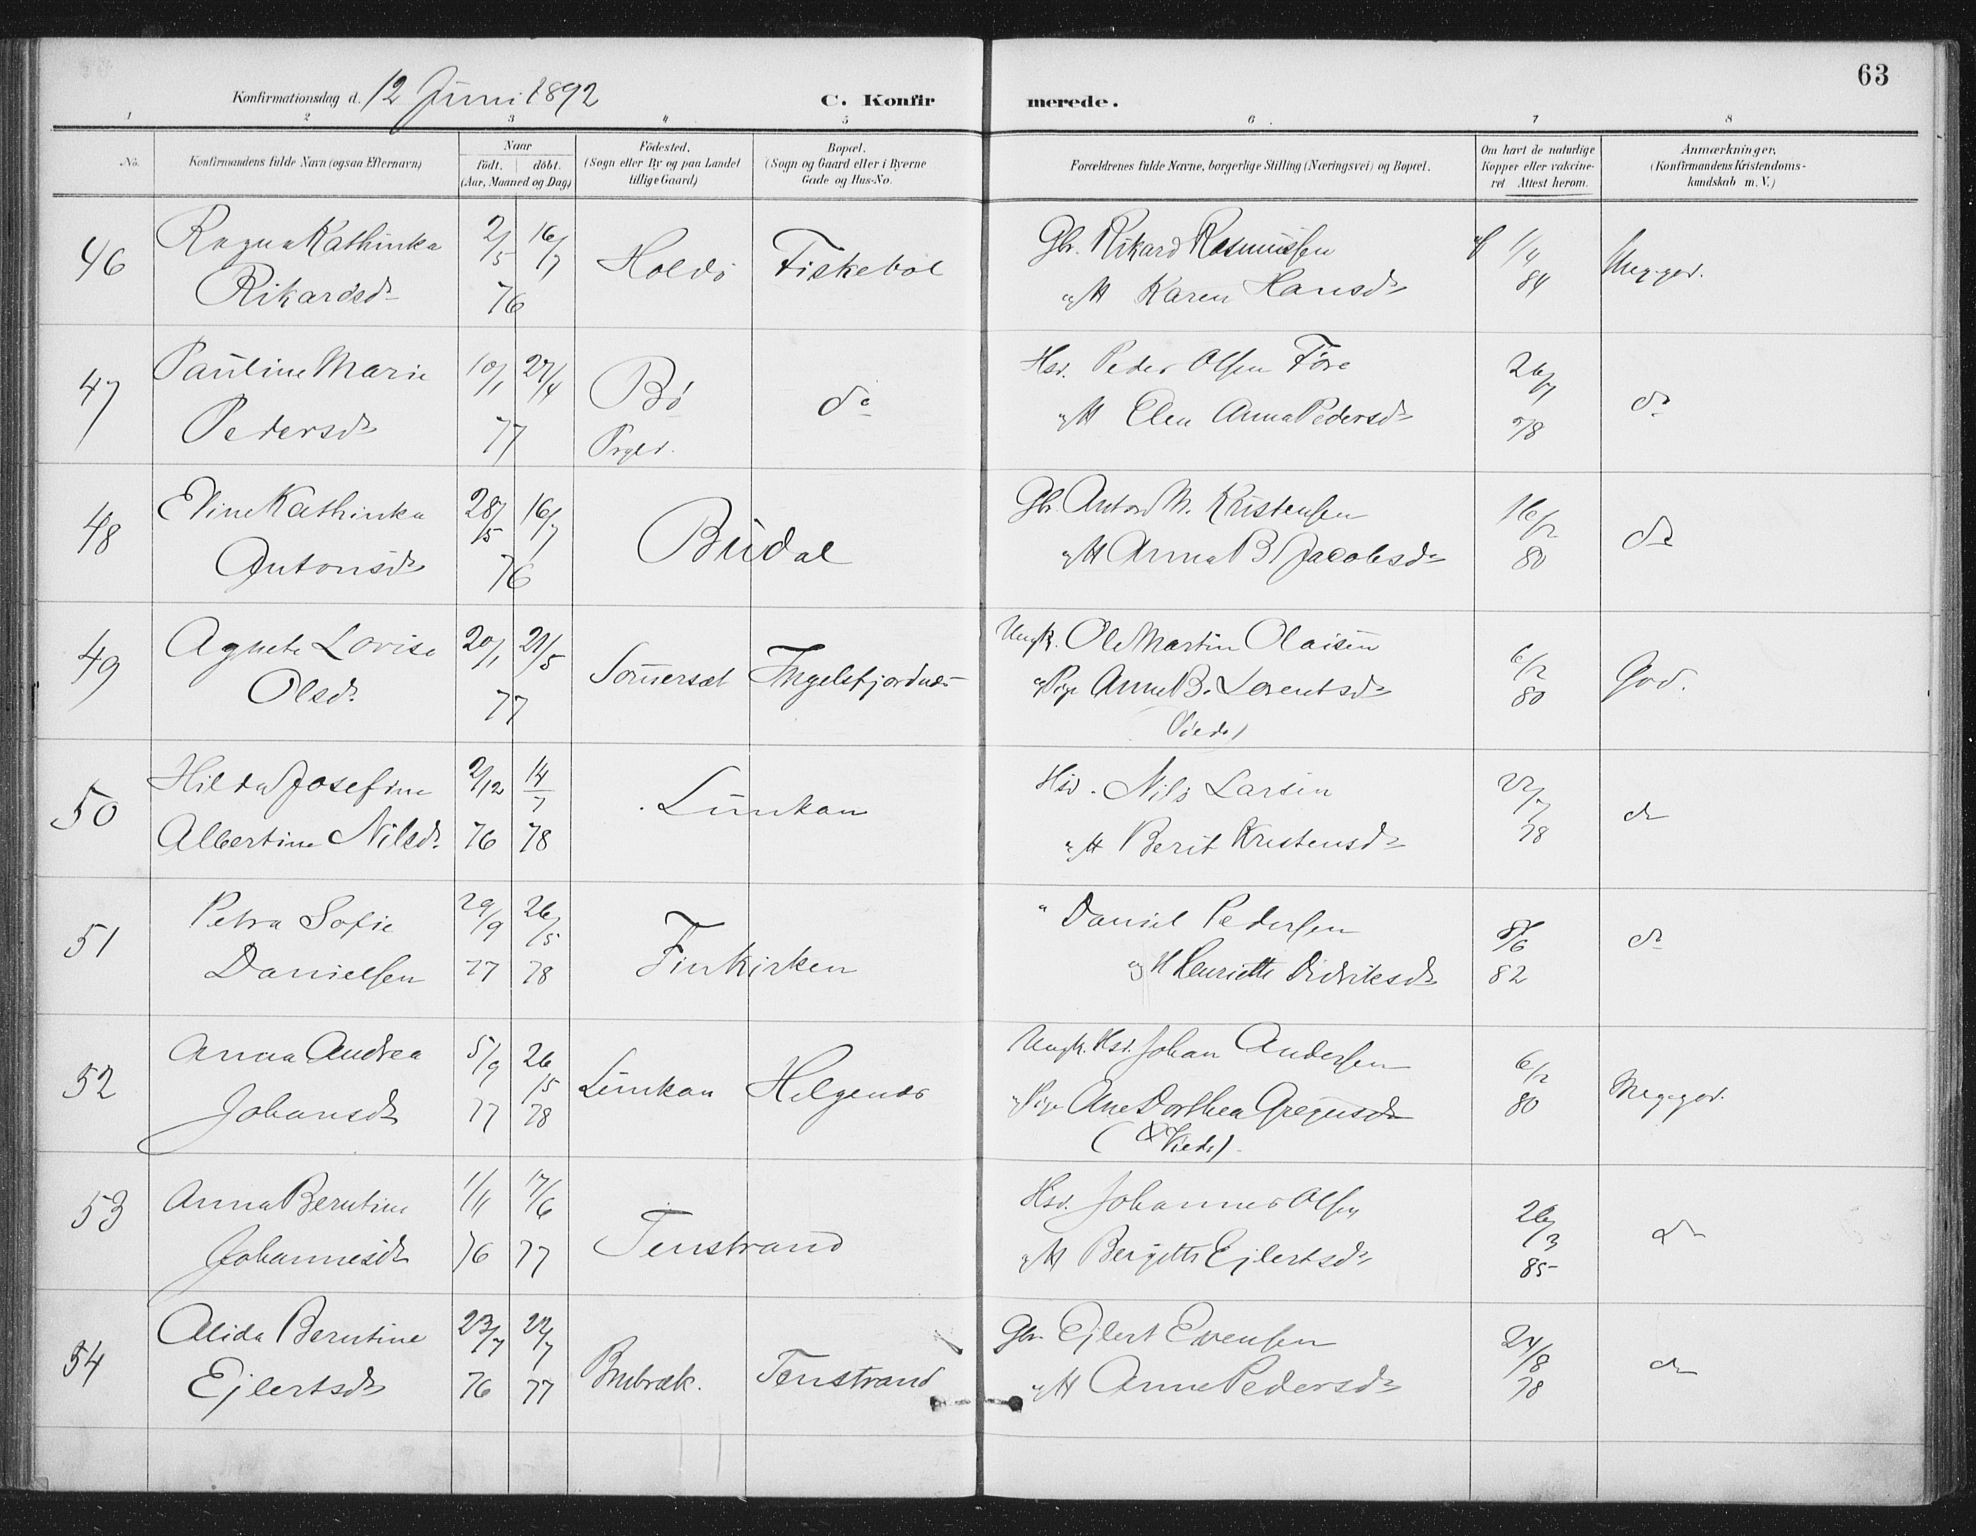 63
Konfirmationsdag d. 12 Juni 1892 C. Konfirmerede.
1 2 3 4 5 6 7 8
No. Konfirmandens fulde Navn (ogsaa Efternavn) Naar født. døbt. (Aar, Maaned og Dag) Fødested. (Sogn eller By og paa Landet tillige Gaard) Bopæl. (Sogn og Gaard eller i Byerne Gade og Hus-No. Forældrenes fulde Navne, borgerlige Stilling (Næringsvei) og Bopæl. Om havt de naturlige Kopper eller vakcineret Attest herom. Anmærkninger, (Konfirmandens Kristendomskundskab m. V.)
46 Ragna Kathinka 2/5 16/7 Holdø Fiskebøl Gbr. Rikard Rasmussen 1/4 Meg. god.
Rikardsdr 76 og H Karen Hansdr 84
47 Pauline Marie 10/1 27/4 Bø do Hsd. Peder Olsen Føre 26/7 do
Pedersdr 77 Prgld. og H Elen Anna Pedersdr 78
48 Eline Kathinka 28/5 16/7 Budal Gbr Anton M. Kristensen 16/2 do
Antonsdr 76 og H Anna B Jacobsdr 80
49 Agnete Lovise 20/1 21/5 Sommersæt Ingelsfjordnes Ungk. Ole Martin Olaisen 6/2 God.
Olsdr. 77 og Pige Anne B. Lorentsdr 80
50 Hilda Josefine 2/12 14/7 Lunkan Hsd. Nils Larsen 22/7 do
Albertine Nilsdr. 76 78 og H Berit Kristensdr 78
51 Petra Sofie 29/9 26/5 Finkirken " Daniel Pedersen 8/6 do
Danielsen 77 78 og H Henriette Didriksdr 82
52 Anna Andrea 5/9 26/5 Lunkan Helgenes Ungk. Hsd. Johan Andersen 6/2 Meg. god.
Johansdr 77 78 og Pige Ane Dorthea Gregusdr 80
53 Anna Berntine 1/11 17/6 Tenstrand Hsd. Johannes Olsen 26/3 do
Johannesdr 76 77 og H Bergitte Ejlertsdr 85
54 Alida Berntine 23/7 22/7 Brubræk. Tenstrand Gbr. Ejlert Evensen 24/8 do
Ejlertsdr 76 77 og H Anne Pedersdr 78